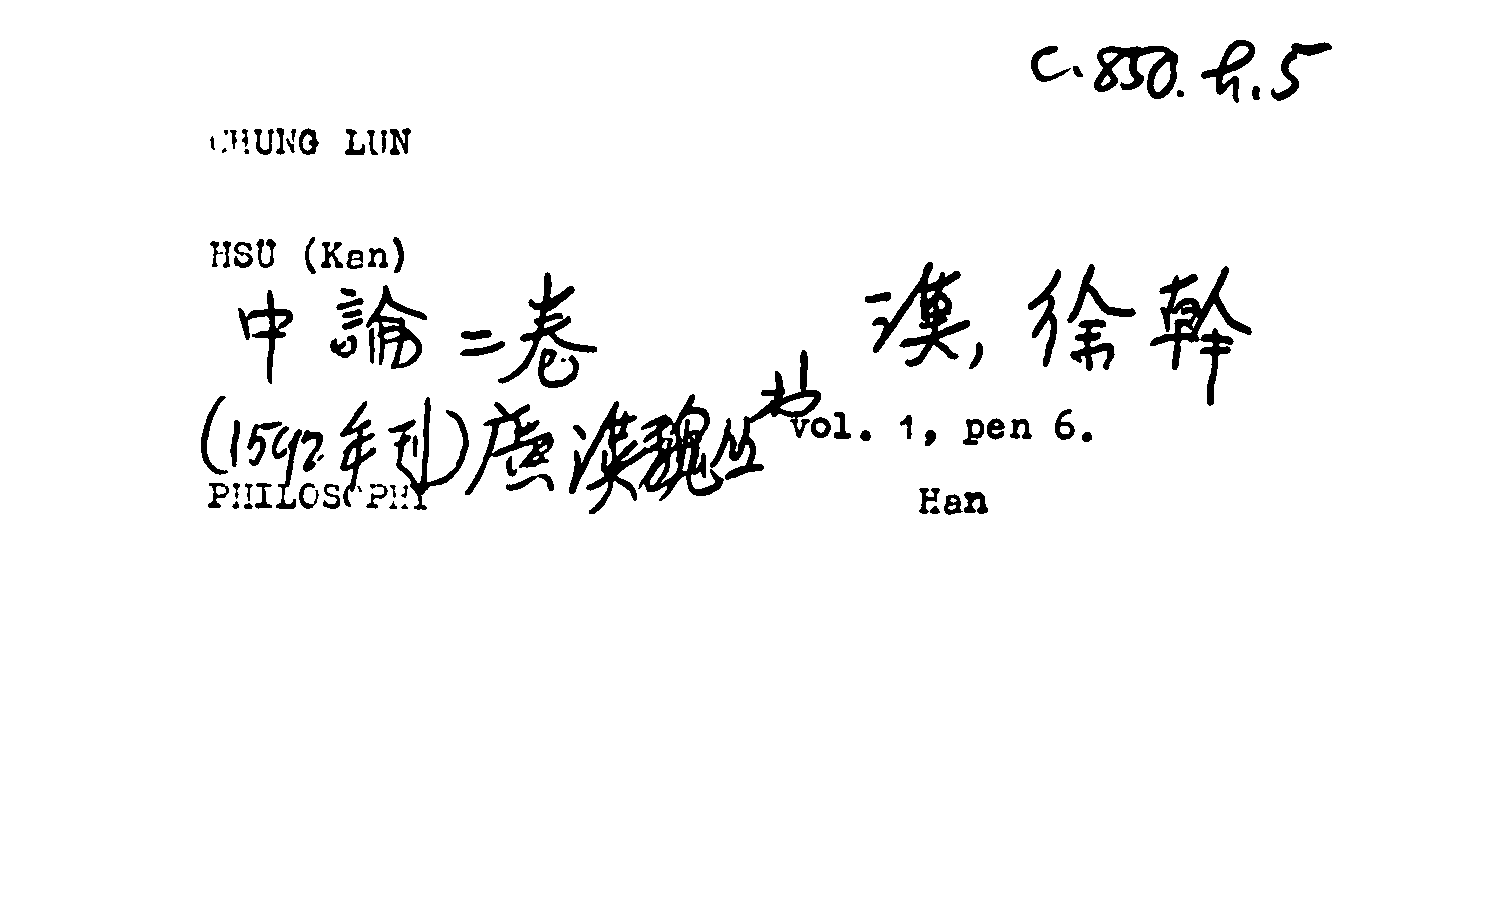 C.850.h.5
CHUNG LUN
HSÜ (Kan)
中論二卷 漢,徐幹
(1592年刊)廣漢魏丛书 vol. 1, pen 6.
PHILOSOPHY Han